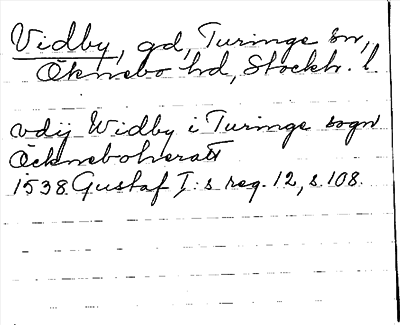 Vidby, gd, Turinge sn,
Öknebo hd, Stockh. l
vdij Widby i Turinge sogn
Öckneboheratt
1538 Gustaf I:s reg. 12, s. 108.